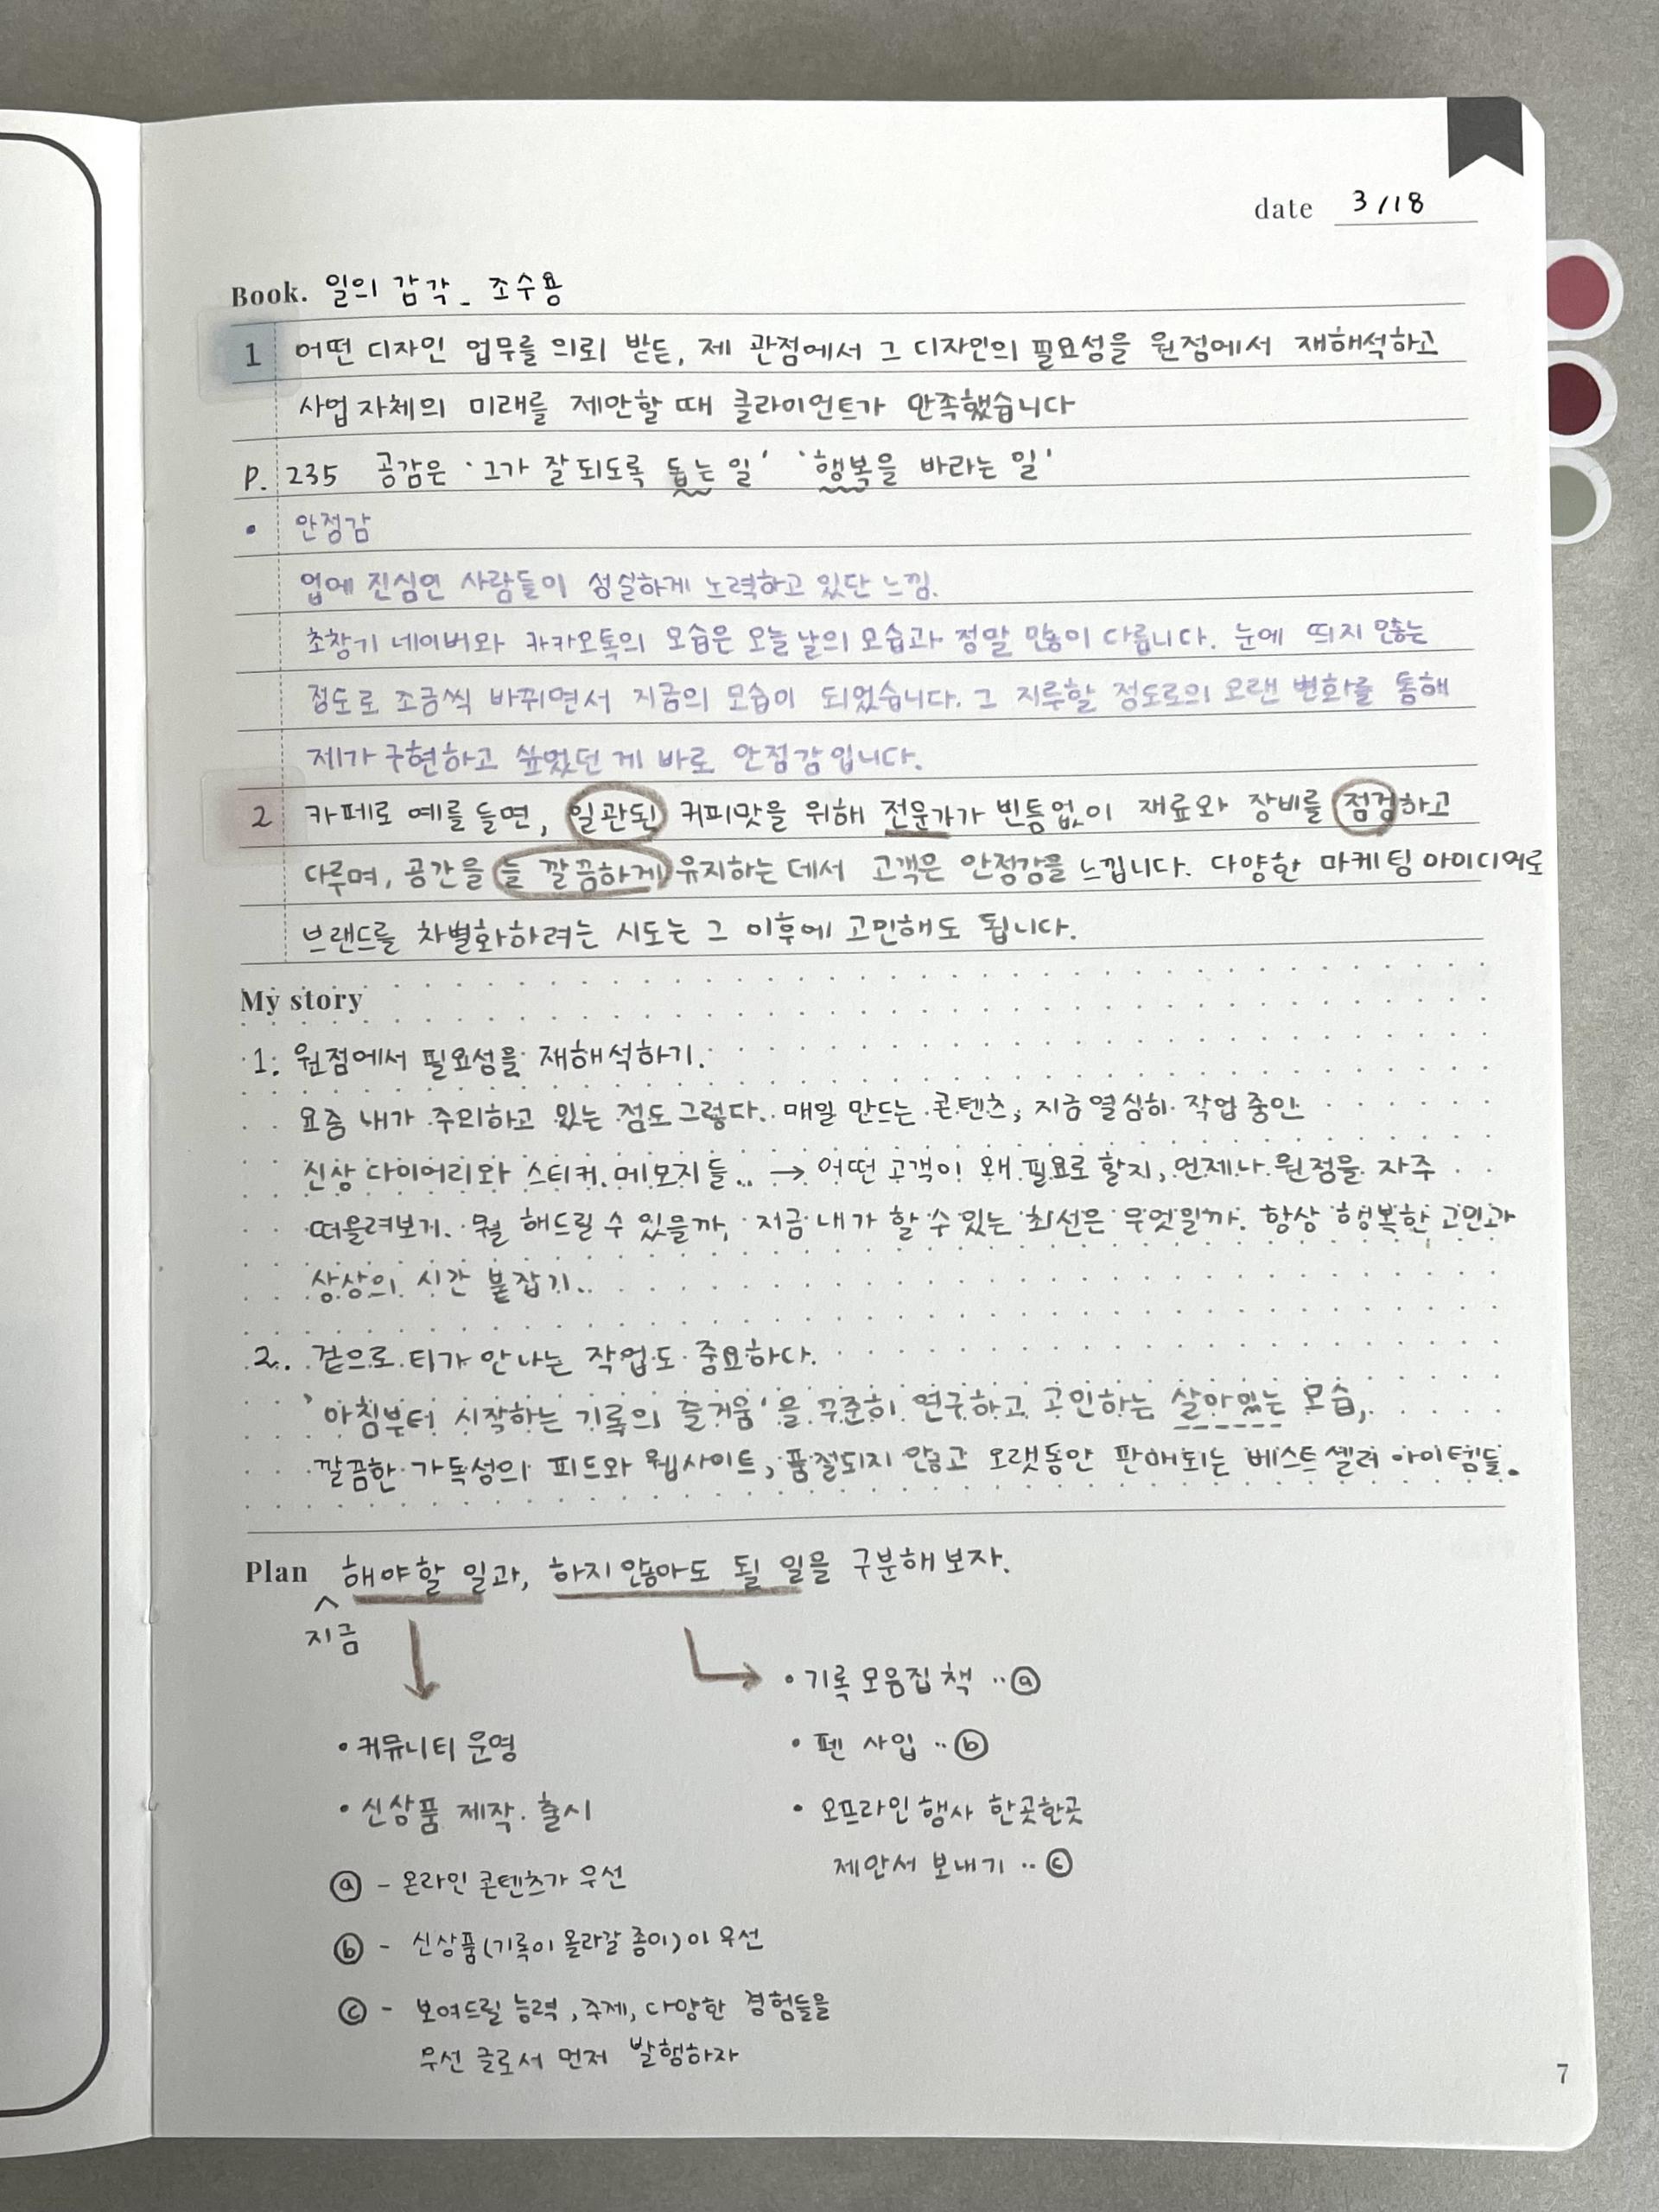 date 3/18
Book. 일의 감각_ 조수용
1 어떤 디자인 업무를 의뢰 받든, 제 관점에서 그 디자인의 필요성을 원점에서 재해석하고
사업 자체의 미래를 제안할 때 클라이언트가 만족했습니다
P. 235 공감은 '그가 잘 되도록 돕는 일' '행복을 바라는 일'
• 안정감
업에 진심인 사람들이 성실하게 노력하고 있단 느낌.
초창기 네이버와 카카오톡의 모습은 오늘날의 모습과 정말 많이 다릅니다. 눈에 띄지 않는
정도로 조금씩 바뀌면서 지금의 모습이 되었습니다. 그 지루할 정도로의 오랜 변화를 통해
제가 구현하고 싶었던 게 바로 안정감입니다.
2 카페로 예를 들면, 일관된 커피맛을 위해 전문가가 빈틈없이 재료와 장비를 점검하고
다루며, 공간을 늘 깔끔하게 유지하는 데서 고객은 안정감을 느낍니다. 다양한 마케팅 아이디어로
브랜드를 차별화하려는 시도는 그 이후에 고민해도 됩니다.
My story
1. 원점에서 필요성을 재해석하기.
요즘 내가 주의하고 있는 점도 그렇다. 매일 만드는 콘텐츠, 지금 열심히 작업 중인
신상 다이어리와 스티커. 메모지들.. → 어떤 고객이 왜 필요로 할지, 언제나 원점을 자주
떠올려보기. 뭘 해드릴 수 있을까, 지금 내가 할 수 있는 최선은 무엇일까. 항상 행복한 고민과
상상의 시간 붙잡기..
2. 겉으로 티가 안 나는 작업도 중요하다.
'아침부터 시작하는 기록의 즐거움'을 꾸준히 연구하고 고민하는 살아있는 모습,
깔끔한 가독성의 피드와 웹사이트, 품절되지 않고 오랫동안 판매되는 베스트셀러 아이템들.
Plan 해야할 일과, 하지 않아도 될 일을 구분해보자.
^
지금
• 기록 모음집 책 ··ⓐ
• 커뮤니티 운영
• 펜 사입 ··ⓑ
• 신상품 제작. 출시
• 오프라인 행사 한곳한곳
제안서 보내기 ··ⓒ
ⓐ - 온라인 콘텐츠가 우선
ⓑ - 신상품(기록이 올라갈 종이)이 우선
ⓒ - 보여드릴 능력, 주제, 다양한 경험들을
우선 글로서 먼저 발행하자
7